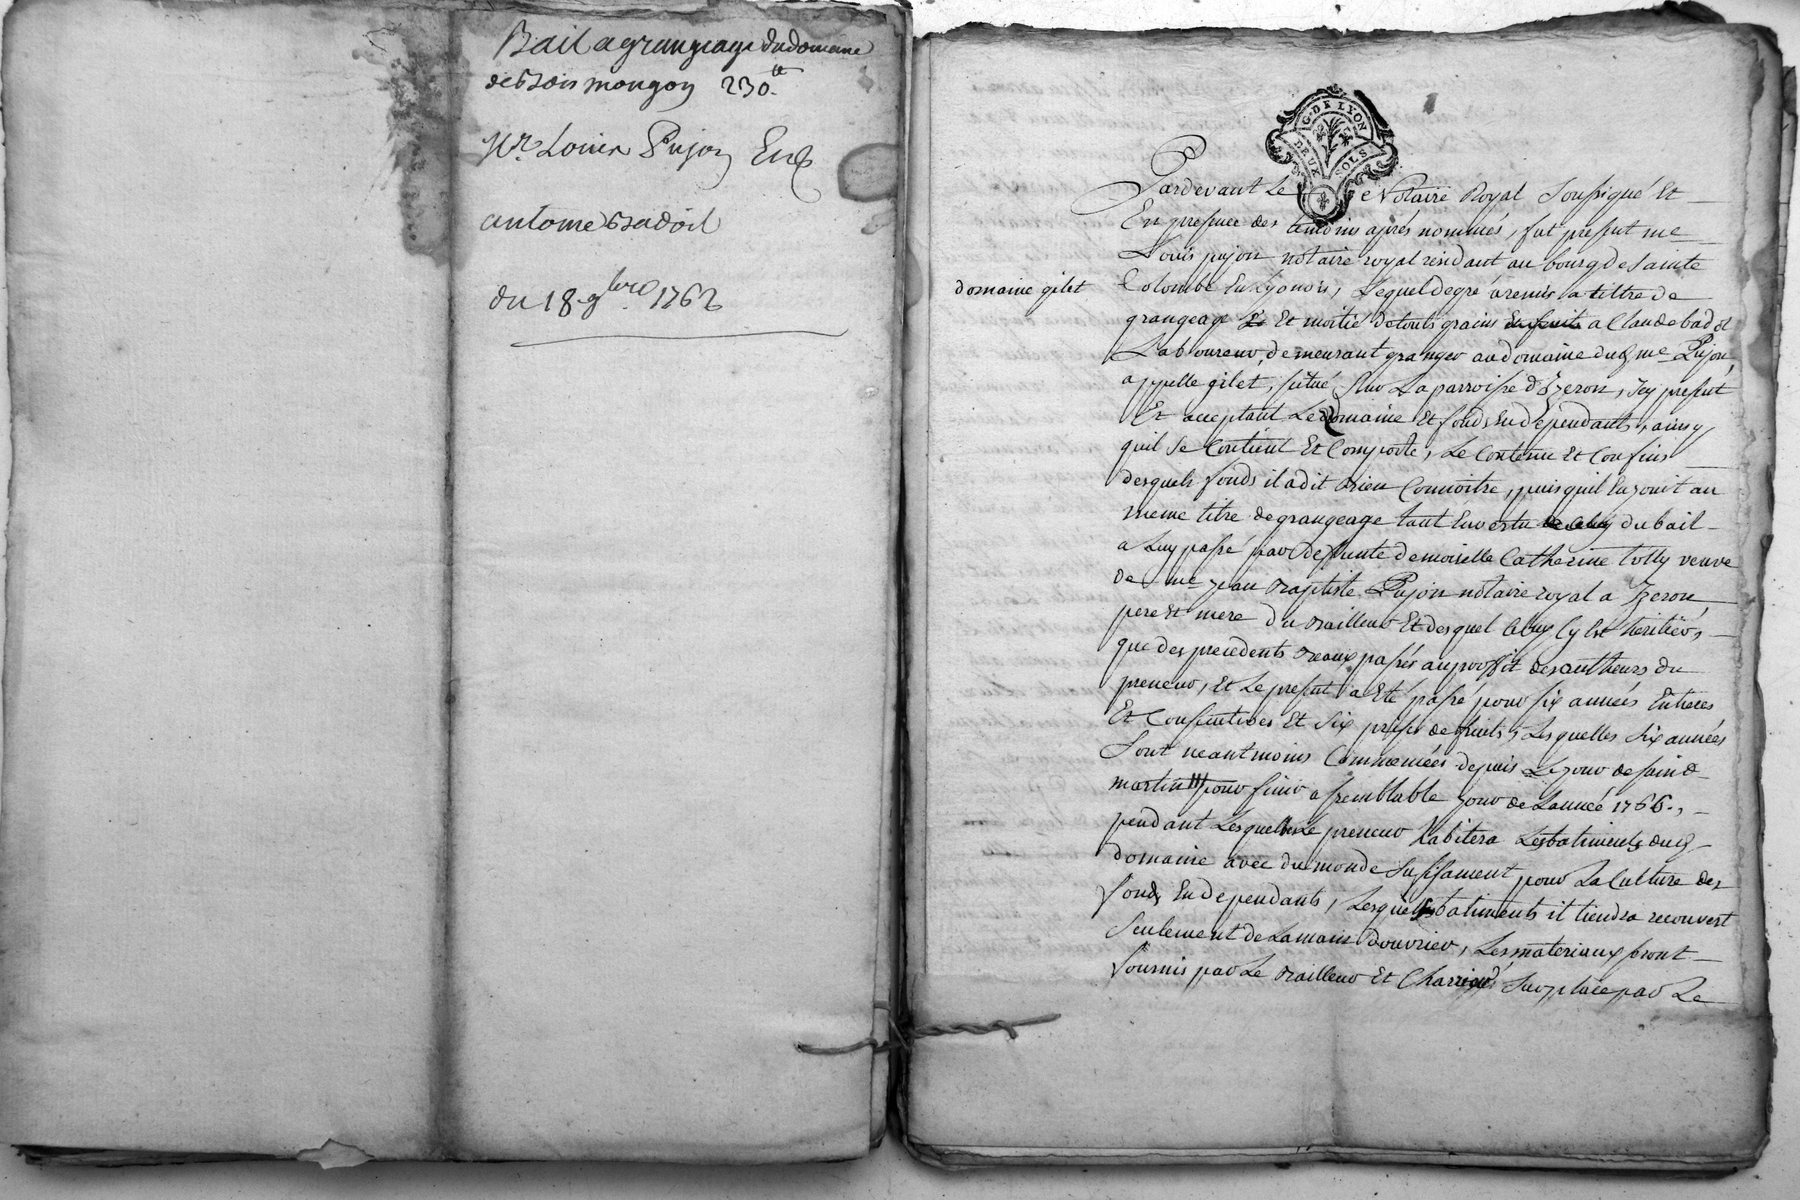 Bail a grangeage du domaine
de Bois mongon 230.tt
Mr. Louis Pujon
antoine Badoil
du 18 9bre 1762
G. DE LYON
DEUX SOLS
Pardevant Le Notaire Royal Soussigné Et
En presence des temoins aprés nommés, fut present me
Louis pujon notaire royal residant au bourg de Sainte
domaine gilet
Colombe En Lyonois, Lequel de gré a remis a tiltre de
grangeage Et moitié de touts grains a Claude badoil
Laboureur, demeurant granger au domaine dud me Pujon
appellé gilet, situé Sur La parroisse d'Izeron, Icy present
Et acceptant Le domaine Et fonds En dépendants, ainsy
quil se Contient Et Comporte, Le Contenu Et Confins
desquels fonds il a dit bien Connoitre, puisquil En jouit au
meme titre de grangeage tant En vertu du bail
a Luy passé par deffunte demoiselle Catherine tolly veuve
de me jean Baptiste Pujon notaire royal a Izeron
pere Et mere du Bailleur Et desquel Celuy Cy Est heritier,
que des precedents Beaux passés au proffit des autheurs du
preneur, Et Le present a Eté passé pour six années Entieres
Et Consecutives Et Six prises de fruits, Lesquelles six années
Sont neantmoins Commencées depuis Le jour de saint
martin pour finir a semblable jour de Lannée 1766.,
pendant Lesquelles Le preneur habitera Les batiments dud
domaine avec du monde Suffisament pour La Culture des
fonds En dependants, Lesquels batiments il tiendra recouvert
Seulement de La main douvrier, Les materiaux seront
fournis par Le Bailleur Et Charriés Sur place par Le